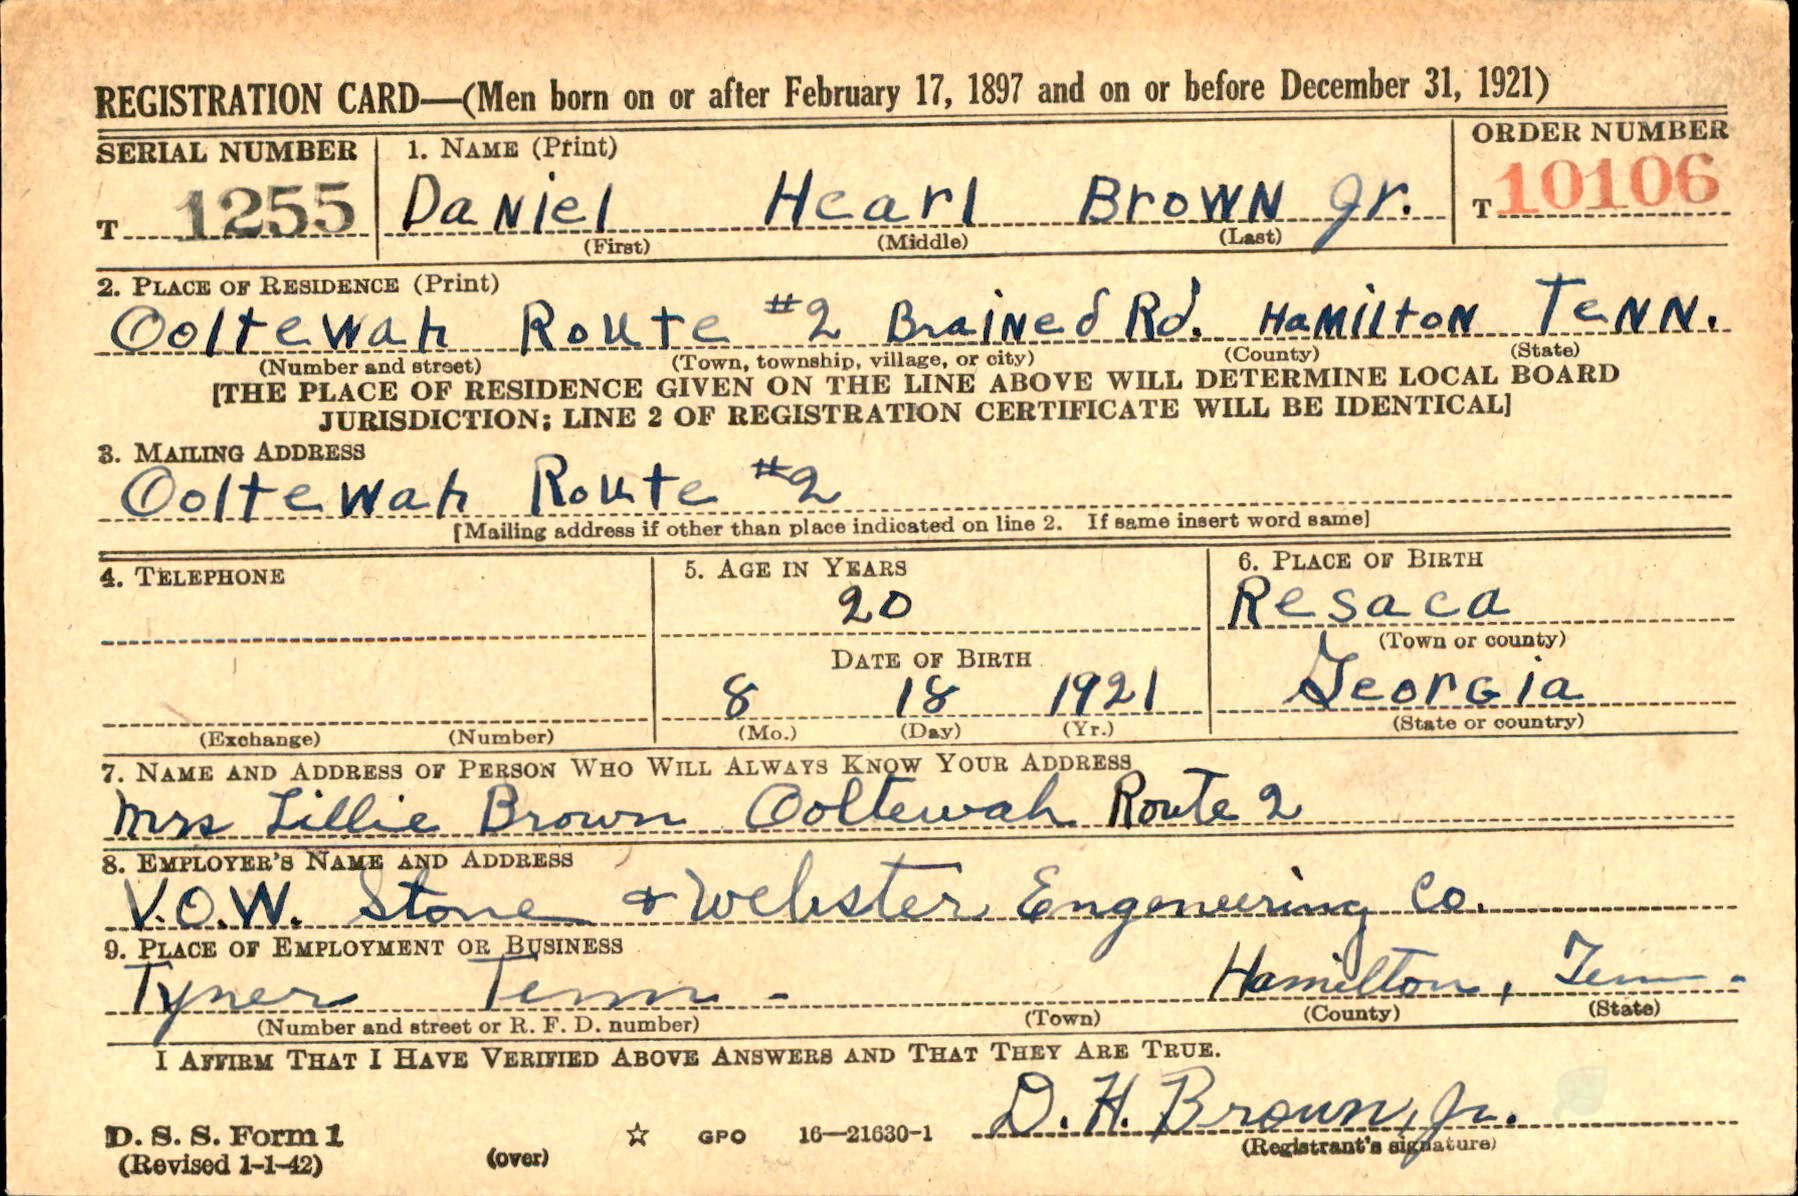 REGISTRATION CARD—(Men born on or after February 17, 1897 and on or before December 31, 1921)
SERIAL NUMBER 1. NAME (Print) ORDER NUMBER
T 1255 Daniel Hearl Brown Jr. T 10106
(First) (Middle) (Last)
2. PLACE OF RESIDENCE (Print)
Ooltewah Route #2 Brained Rd. Hamilton Tenn.
(Number and street) (Town, township, village, or city) (County) (State)
[THE PLACE OF RESIDENCE GIVEN ON THE LINE ABOVE WILL DETERMINE LOCAL BOARD
JURISDICTION; LINE 2 OF REGISTRATION CERTIFICATE WILL BE IDENTICAL]
3. MAILING ADDRESS
Ooltewah Route #2
[Mailing address if other than place indicated on line 2. If same insert word same]
4. TELEPHONE 5. AGE IN YEARS 6. PLACE OF BIRTH
20 Resaca
(Town or county)
DATE OF BIRTH
8 18 1921 Georgia
(Exchange) (Number) (Mo.) (Day) (Yr.) (State or country)
7. NAME AND ADDRESS OF PERSON WHO WILL ALWAYS KNOW YOUR ADDRESS
Mrs Lillie Brown Ooltewah Route 2
8. EMPLOYER'S NAME AND ADDRESS
V.O.W. Stone & Webster Engeneering Co.
9. PLACE OF EMPLOYMENT OR BUSINESS
Tyner Tenn - Hamilton, Tenn-
(Number and street or R. F. D. number) (Town) (County) (State)
I AFFIRM THAT I HAVE VERIFIED ABOVE ANSWERS AND THAT THEY ARE TRUE.
D. H. Brown, Jr.
D. S. S. Form 1
(Revised 1-1-42) (over) ☆ GPO 16—21630-1 (Registrant's signature)